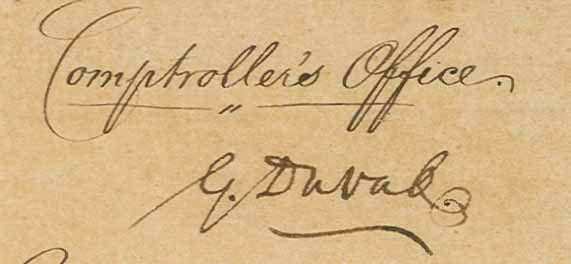 Comptroller's Office.
G. Duval